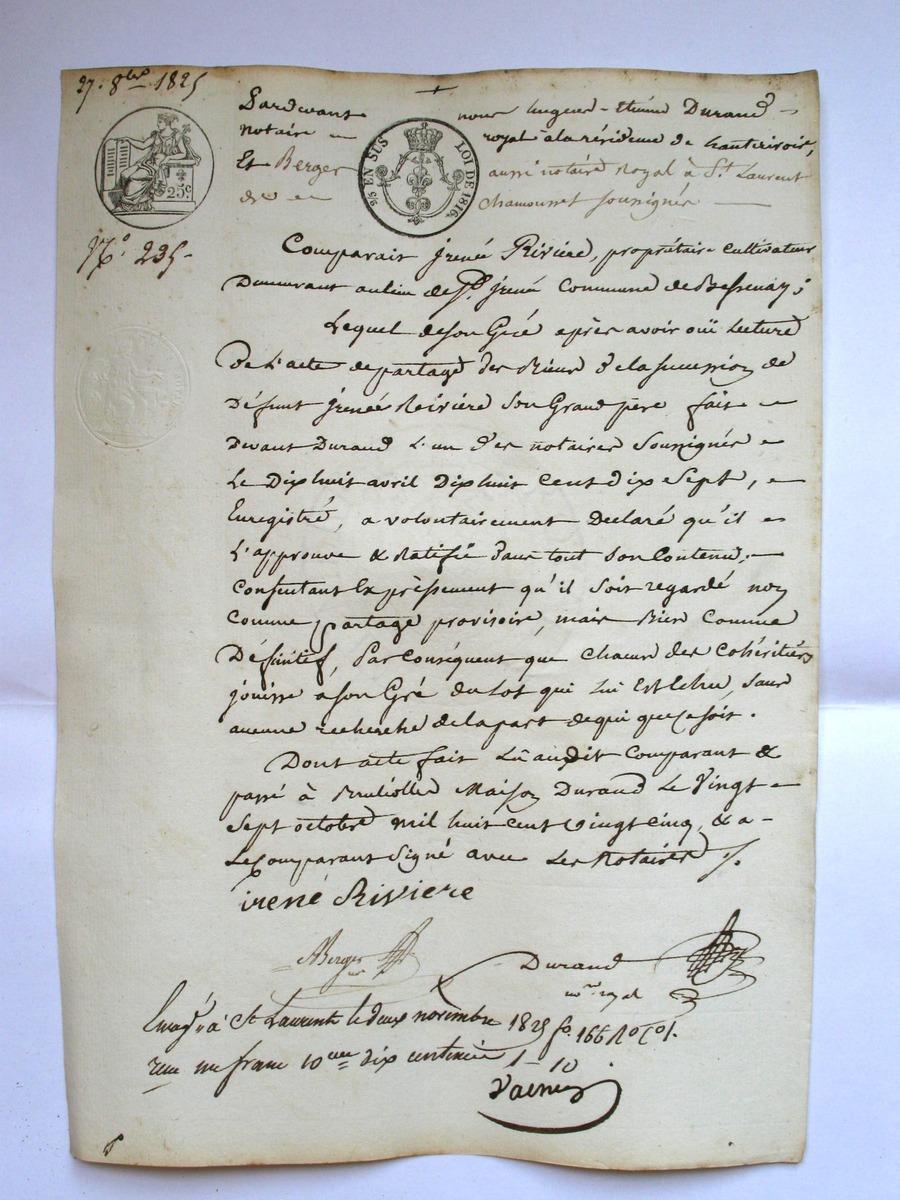 27. 8bre 1825
25c.
Pardevant nous hugues-Etienne Durand
notaire royal à la résidence de hauterivoire,
Et Berger aussi notaire Royal à St. Laurent
de Chamousset soussignés
EN SUS LOI DE 1816.
No. 235
Comparait jrenée Rivière, propriétaire cultivateur
Demeurant au lieu de St. jrené Commune de Bessenay;
Lequel de son Gré après avoir ouï Lecture
De L'acte de partage des Biens de la succession de
Défunt jrenée Rivière Son Grand père fait
Devant Durand L'un des notaires Soussignés
Le Dix huit avril Dix huit cent dix Sept,
Enregistré, a volontairement Déclaré qu'il
L'approuve & Ratifie dans tout Son Contenu,
Consentant Expressement qu'il soit regardé non
Comme partage provisoire, mais Bien Comme
Définitif, Par Conséquent que chacun des Cohéritiers
jouisse à son Gré du lot qui lui Est Echu, sans
aucune recherche de la part de qui que ce soit.
Dont acte fait Lû audit Comparant &
passé à Brullioles Maison Durand Le Vingt
Sept octobre mil huit cent vingt cinq, & a
Le Comparant Signé avec Les Notaires
irené Riviere
Berger
Durand
nre. royal
Enregé. à St Laurent le deux novembre 1825 fo. 166 Ro Co 1.
reçu un franc 10me dix centimes 1 - 10